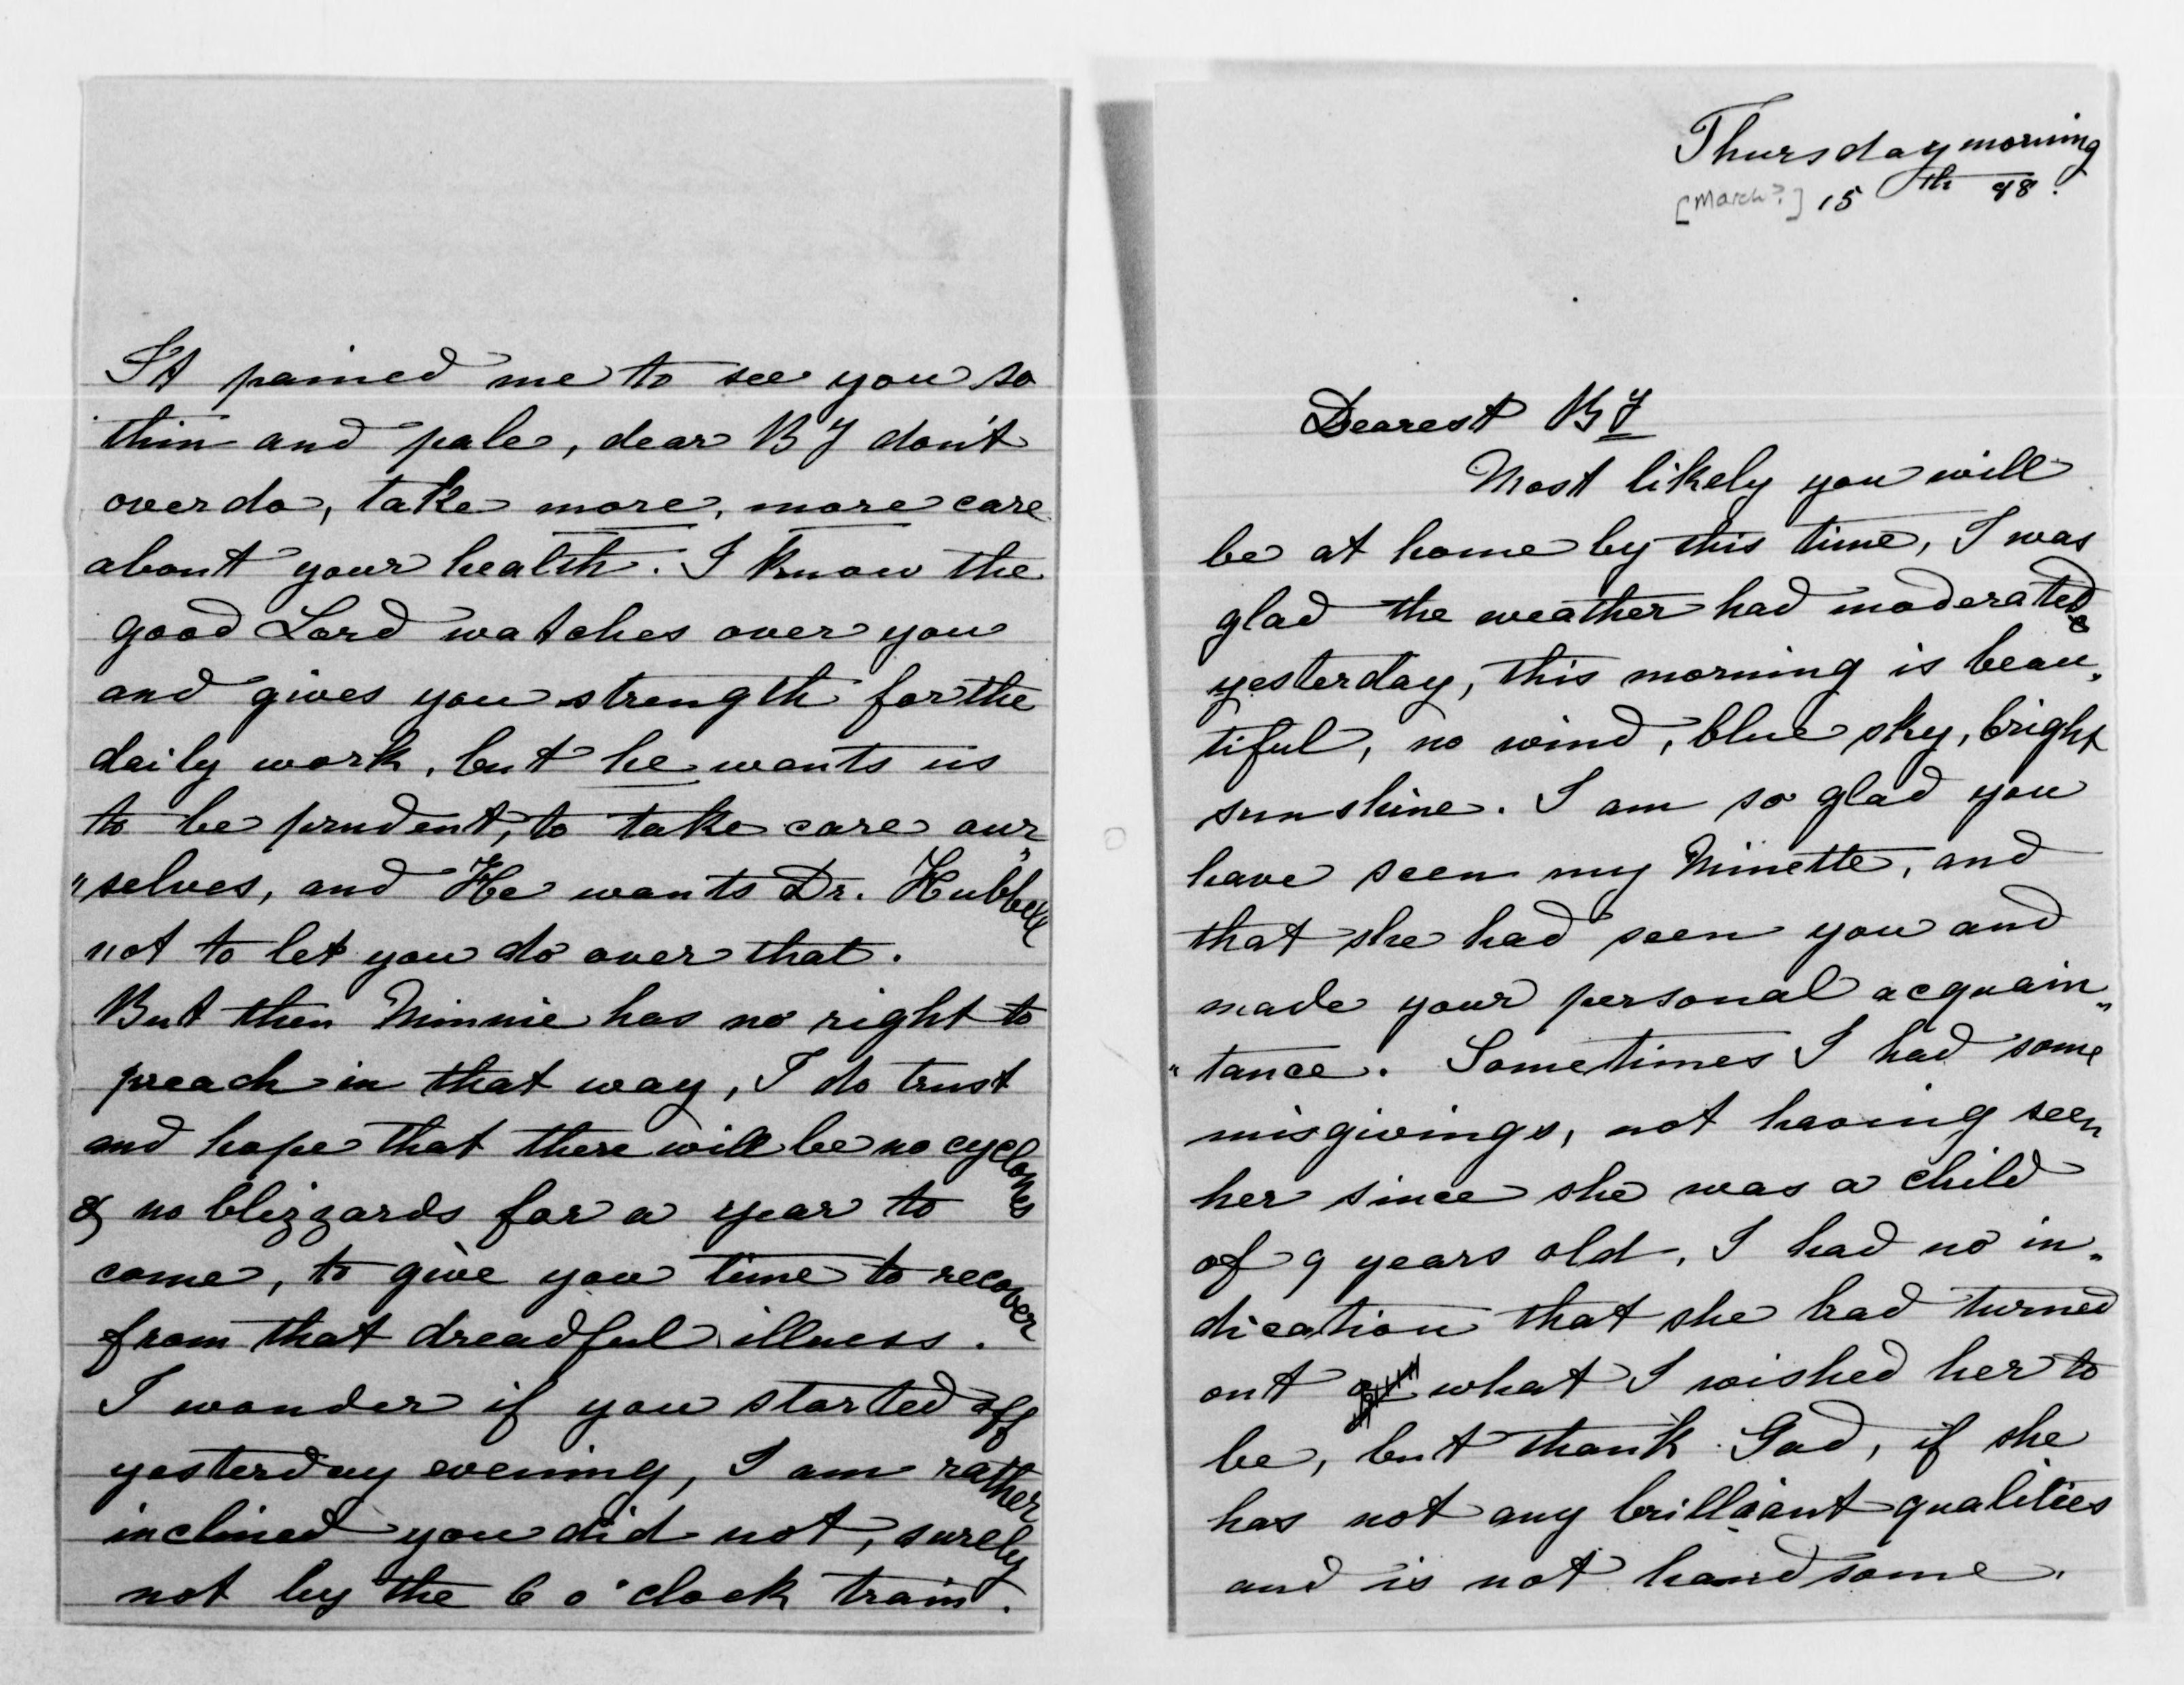 It pained me to see you so
thin and pale, dear B F don't
over do, take more, more care
about your health. I know the
good Lord watches over you
and gives you strength for the
daily work, but he wants us
to be prudent, to take care our„
„selves, and He wants Dr. Hubbell
not to let you do over that.
But then Minnie has no right to
preach in that way, I do trust
and hope that there will be no cyclones
& no blizzards for a year to
come, to give you time to recover
from that dreadful illness.
I wonder if you started off
yesterday evening, I am rather
inclined you did not, surely
not by the 6 o'clock train.
Thursday morning
[March?] 15th 88.
Dearest B F
Most likely you will
be at home by this time, I was
glad the weather had moderated
yesterday, this morning is beau„
tiful, no wind, blue sky, bright
sunshine. I am so glad you
have seen my Minette, and
that she had seen you and
made your personal acquain„
„tance. Sometimes I had some
misgivings, not having seen
her since she was a child
of 9 years old, I had no in„
dication that she had turned
out what I wished her to
be, but thank God, if she
has not any brilliant qualities
and is not handsome.